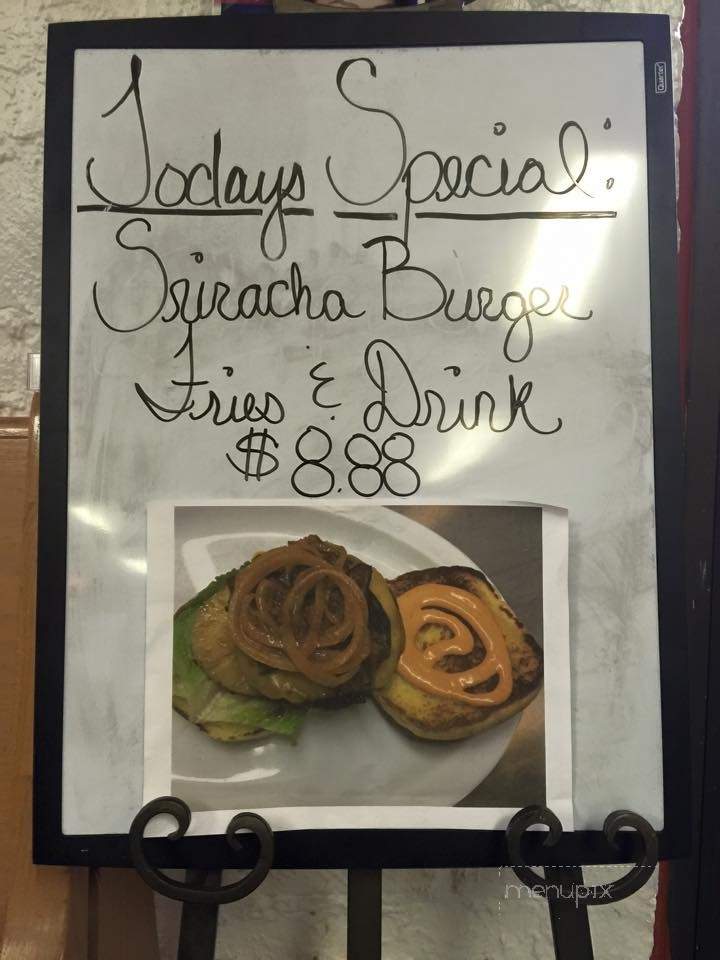 Quartet
Todays Special:
Sriracha Burger
Fries & Drink
$8.88
menupix